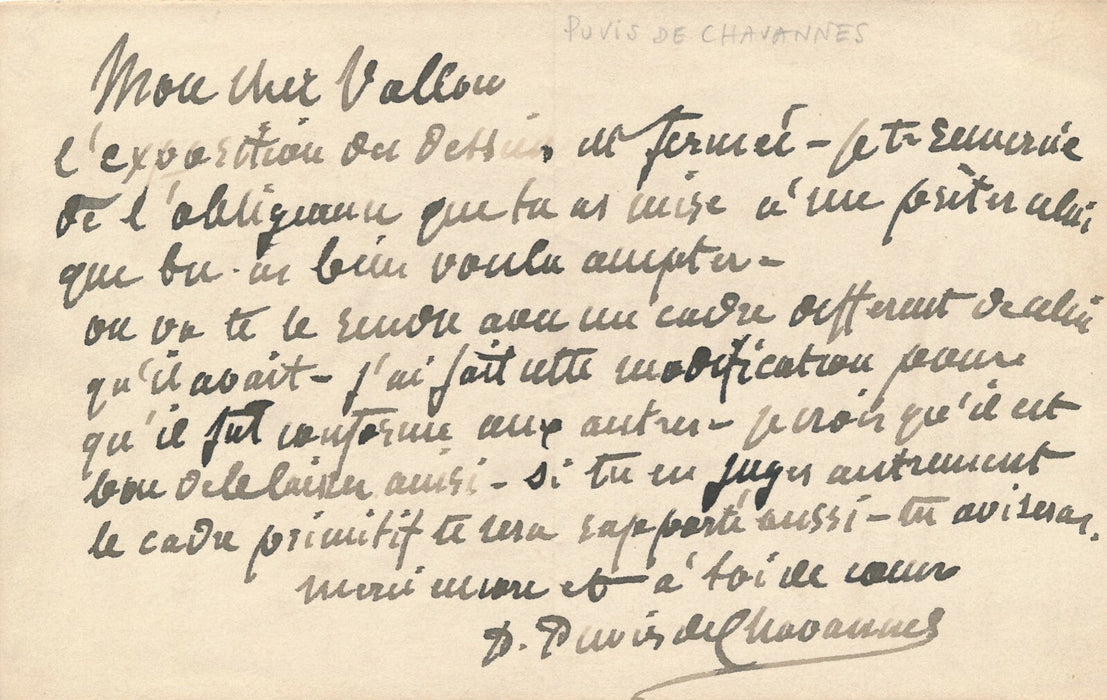 PUVIS DE CHAVANNES
Mon cher Vallon
l'exposition des dessins est fermée – je te remercie
de l'obligeance que tu as mise à me prêter celui
que tu as bien voulu accepter –
on va te le rendre avec un cadre différent de celui
qu'il avait – j'ai fait cette modification pour
qu'il fut conforme aux autres – je crois qu'il est
bon de le laisser ainsi – si tu en juges autrement
le cadre primitif te sera rapporté aussi – tu aviseras.
merci encore et à toi de cœur
P. Puvis de Chavannes